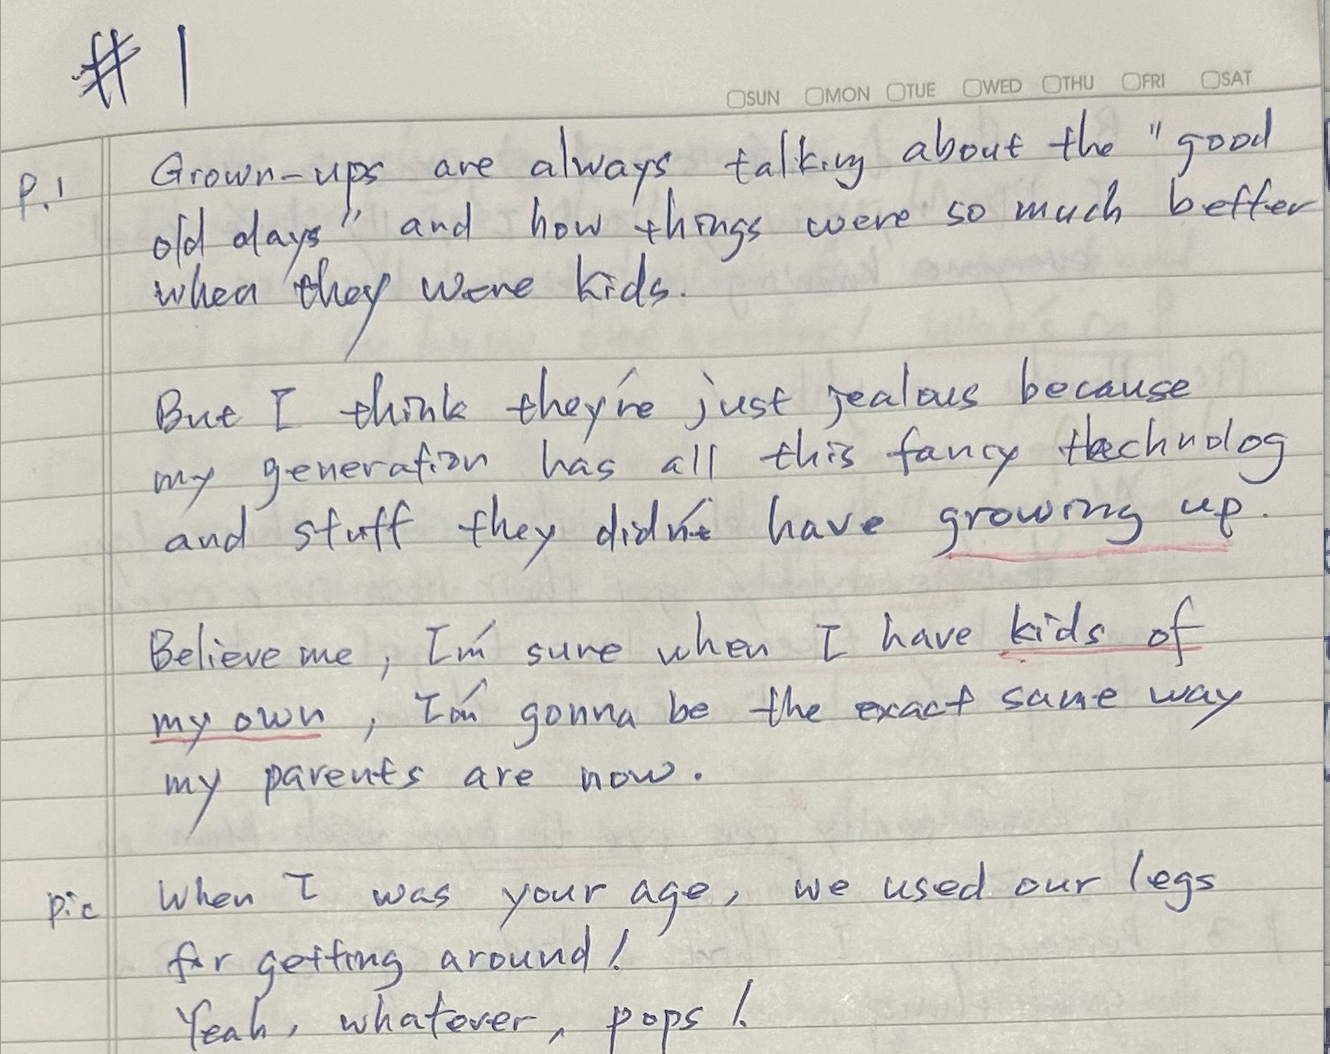 #1
SUN MON TUE WED THU FRI SAT
P.1 Grown-ups are always talking about the "good
old days" and how things were so much better
when they were kids.
But I think they're just jealous because
my generation has all this fancy technolog
and stuff they didn't have growing up.
Believe me, I'm sure when I have kids of
my own, I'm gonna be the exact same way
my parents are now.
pic When I was your age, we used our legs
for getting around!
Yeah, whatever, pops!